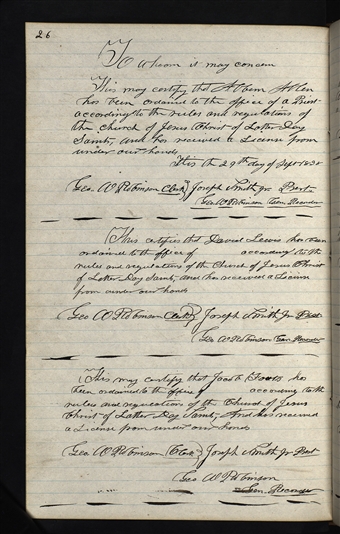 26
To whom it may concern
This may certify that Albem Allen
has been ordained to the office of a Priest
according to the rules and regulations of
the Church of Jesus Christ of Latter Day
Saints, and has received a License from
under our hands
This the 29th day of Sept 1838
Geo. W Robinson Clerk} Joseph Smith jr Prest.
Geo W Robinson Gen. Recorder
This certifies that David Lewis has been
ordained to the office of according to the
rules and regulations of the Church of Jesus Christ
of Latter Day Saints, and has received a License
from under our hands
Geo W Robinson Clerk} Joseph Smith Jr Prest
Geo W Robinson Gen. Recorder
This may certify that Jacob has
been ordained to the office according to the
rules and regulations of the Church of Jesus
Christ of Latter Day Saints, And has received
a License from under our hands
Geo W Robinson Clerk} Joseph Smith Jr Prest
Geo W Robinson
Gen. Recorder